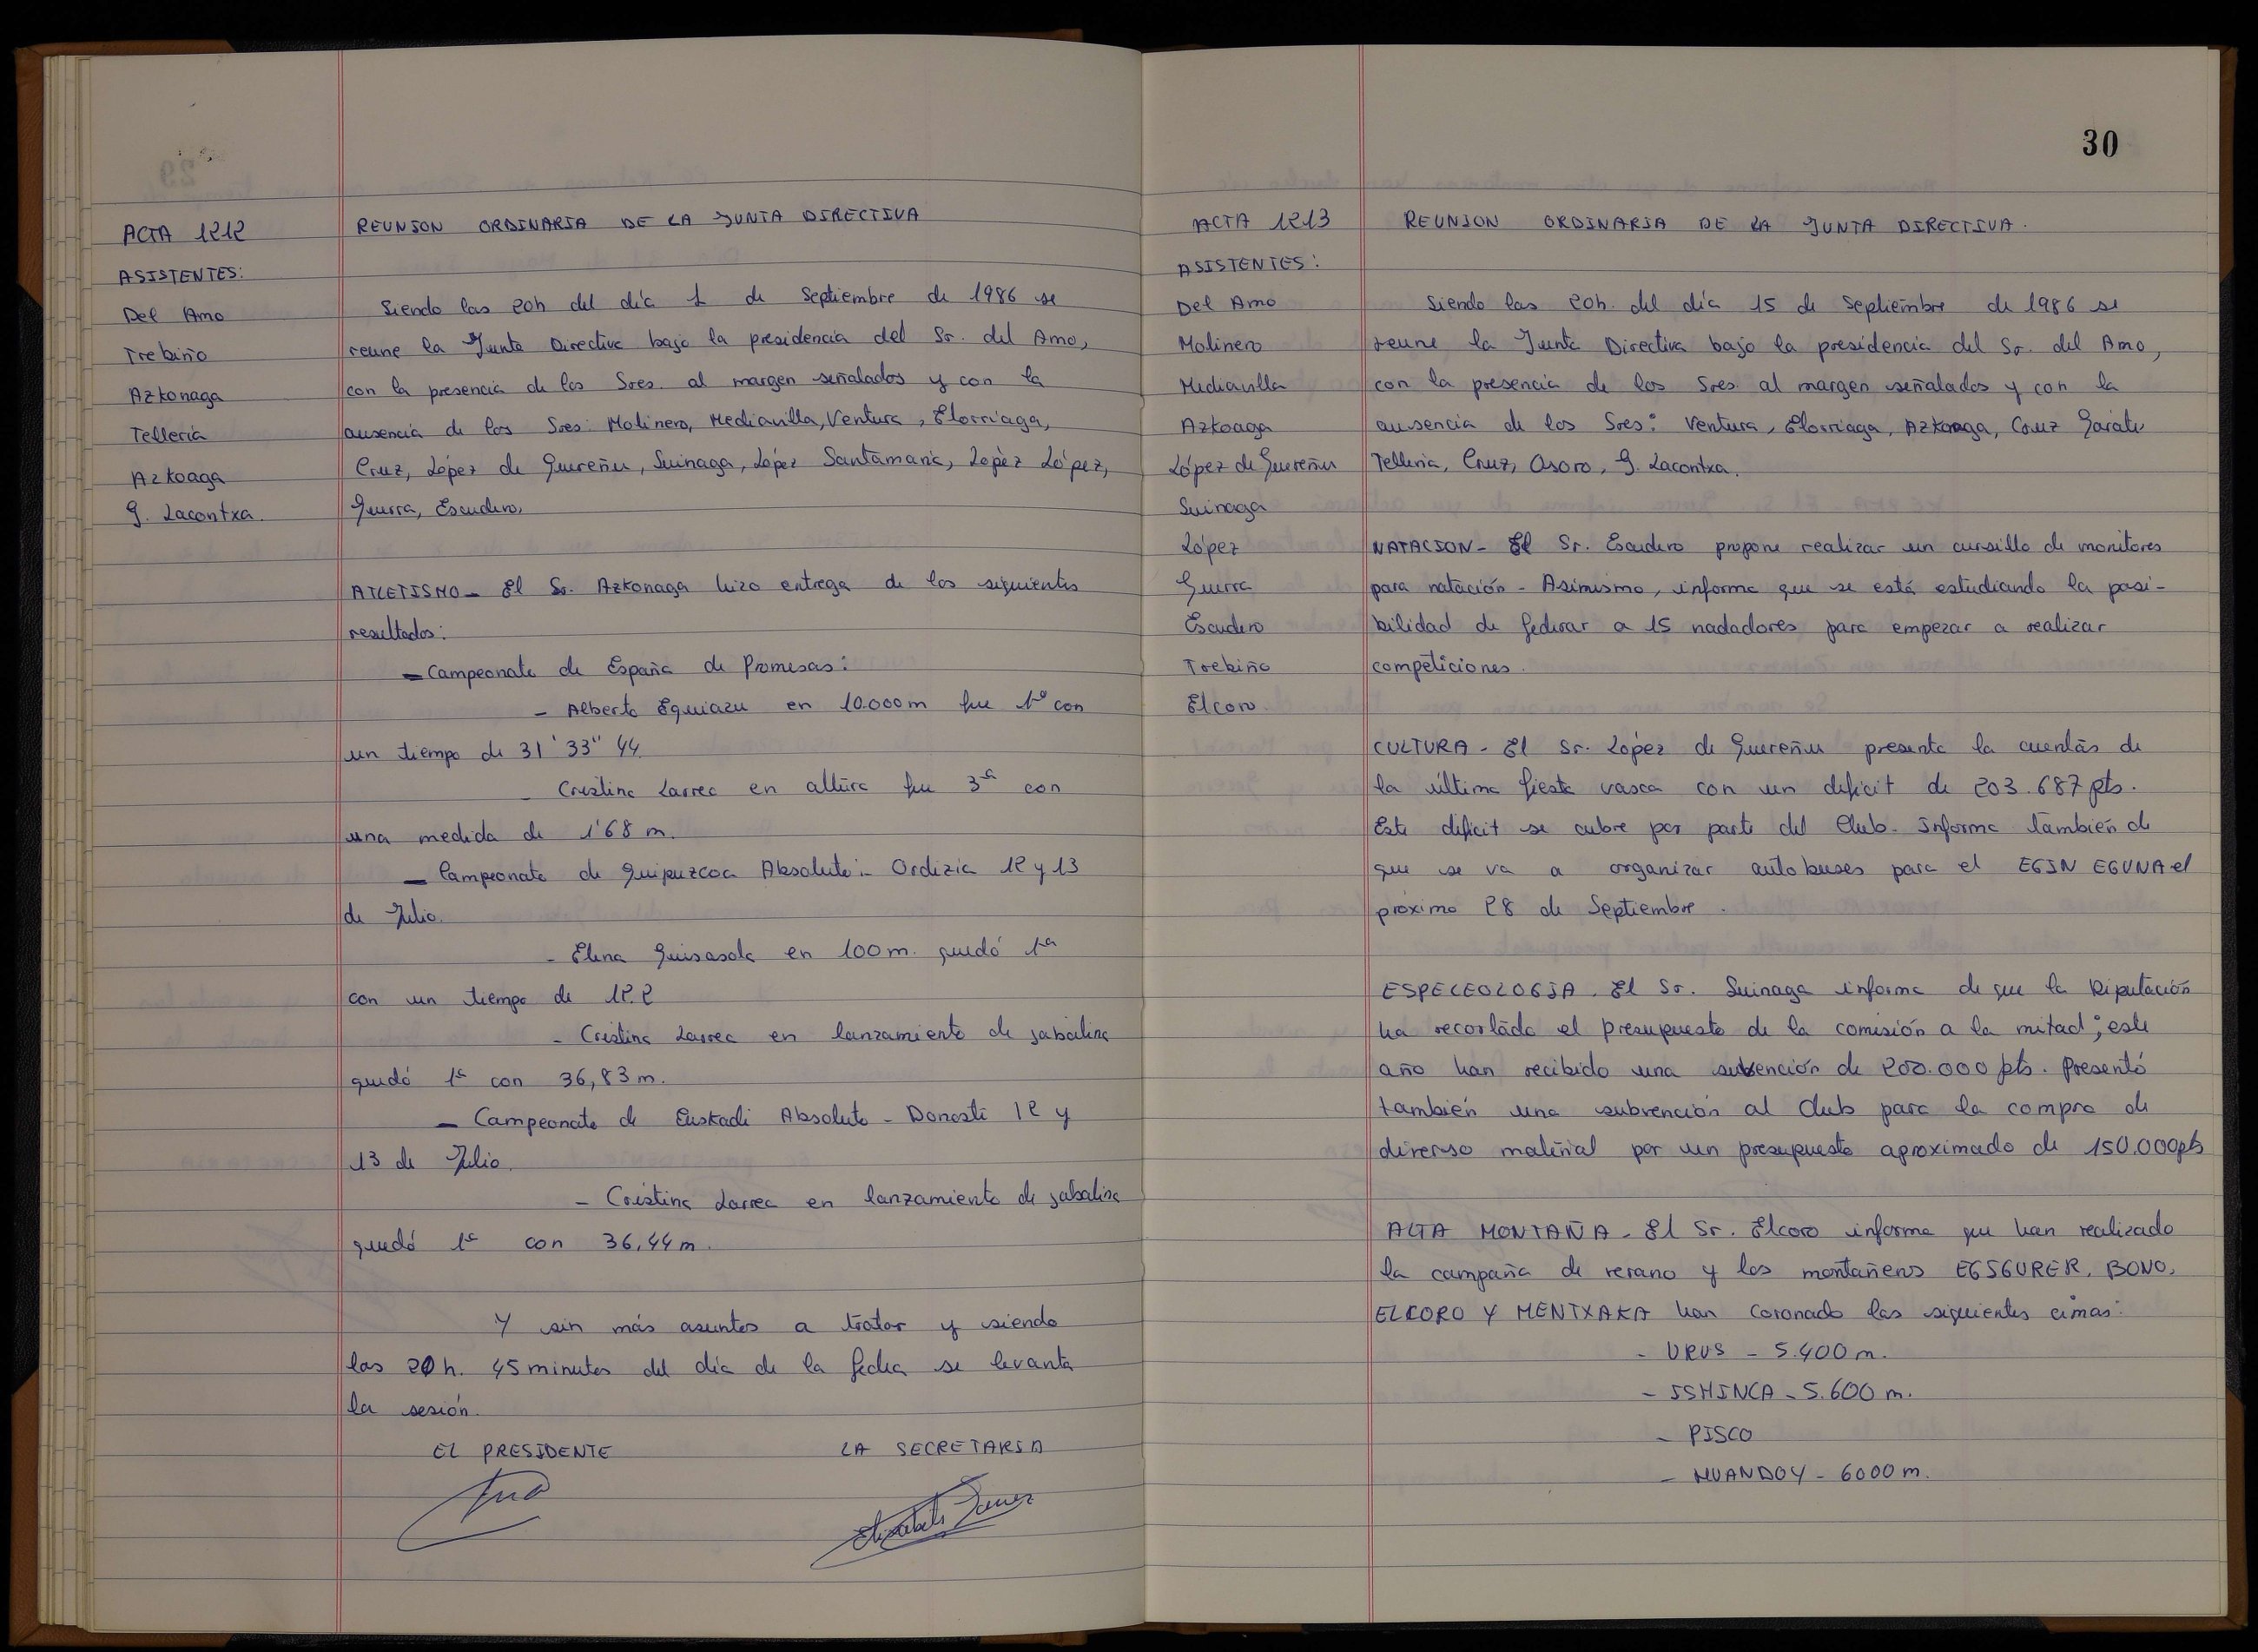 ACTA 1212
ASISTENTES:
Del Amo
Trebiño
Azkonaga
Tellería
Azkoaga
G. Lacontxa.
REUNION ORDINARIA DE LA JUNTA DIRECTIVA
Siendo las 20h del día 1 de Septiembre de 1986 se
reune la Junta Directiva bajo la presidencia del Sr. del Amo,
con la presencia de los Sres. al margen señalados y con la
ausencia de los Sres: Molinero, Mediavilla, Ventura, Elorriaga,
Cruz, López de Guereñu, Suinaga, López Santamaría, López López,
Guerra, Escudero.
ATLETISMO - El Sr. Azkonaga hizo entrega de los siguientes
resultados:
- Campeonato de España de Promesas:
- Alberto Eguiazu en 10.000m fue 1º con
un tiempo de 31' 33" 44.
- Cristina Larrea en altura fue 3ª con
una medida de 1'68 m.
- Campeonato de Guipuzcoa Absoluto:- Ordizia 12 y 13
de Julio.
- Elena Guisasola en 100m. quedó 1ª
con un tiempo de 12.2
- Cristina Larrea en lanzamiento de jabalina
quedó 1ª con 36,83m.
- Campeonato de Euskadi Absoluto - Donosti 12 y
13 de Julio.
- Cristina Larrea en lanzamiento de jabalina
quedó 1ª con 36,44m.
Y sin más asuntos a tratar y siendo
las 20h. 45 minutos del día de la fecha se levanta
la sesión.
EL PRESIDENTE LA SECRETARIA
30
ACTA 1213
ASISTENTES:
Del Amo
Molinero
Mediavilla
Azkoaga
López de Guereñu
Suinaga
López
Guerra
Escudero
Trebiño
Elcoro.
REUNION ORDINARIA DE LA JUNTA DIRECTIVA.
Siendo las 20h. del día 15 de Septiembre de 1986 se
reune la Junta Directiva bajo la presidencia del Sr. del Amo,
con la presencia de los Sres al margen señalados y con la
ausencia de los Sres: Ventura, Elorriaga, Azkonaga, Cruz Garate
Tellería, Cruz, Osoro, G. Lacontxa.
NATACION - El Sr. Escudero propone realizar un cursillo de monitores
para natación - Asimismo, informa que se está estudiando la posi-
bilidad de federar a 15 nadadores para empezar a realizar
competiciones.
CULTURA - El Sr. López de Guereñu presenta la cuentas de
la última fiesta vasca con un deficit de 203.687 pts.
Este deficit se cubre por parte del Club. Informa también de
que se va a organizar autobuses para el EGIN EGUNA el
próximo 28 de Septiembre.
ESPELEOLOGIA. El Sr. Suinaga informa de que la Diputación
ha recortado el presupuesto de la comisión a la mitad; este
año han recibido una subvención de 200.000 pts. Presentó
también una subvención al Club para la compra de
diverso material por un presupuesto aproximado de 150.000 pts
ALTA MONTAÑA - El Sr. Elcoro informa que han realizado
la campaña de verano y los montañeros EGIGUREN, BONO,
ELCORO Y MENTXAKA han coronado las siguientes cimas:
- URUS - 5.400 m.
- ISHINCA - 5.600 m.
- PISCO
- HUANDOY - 6000 m.